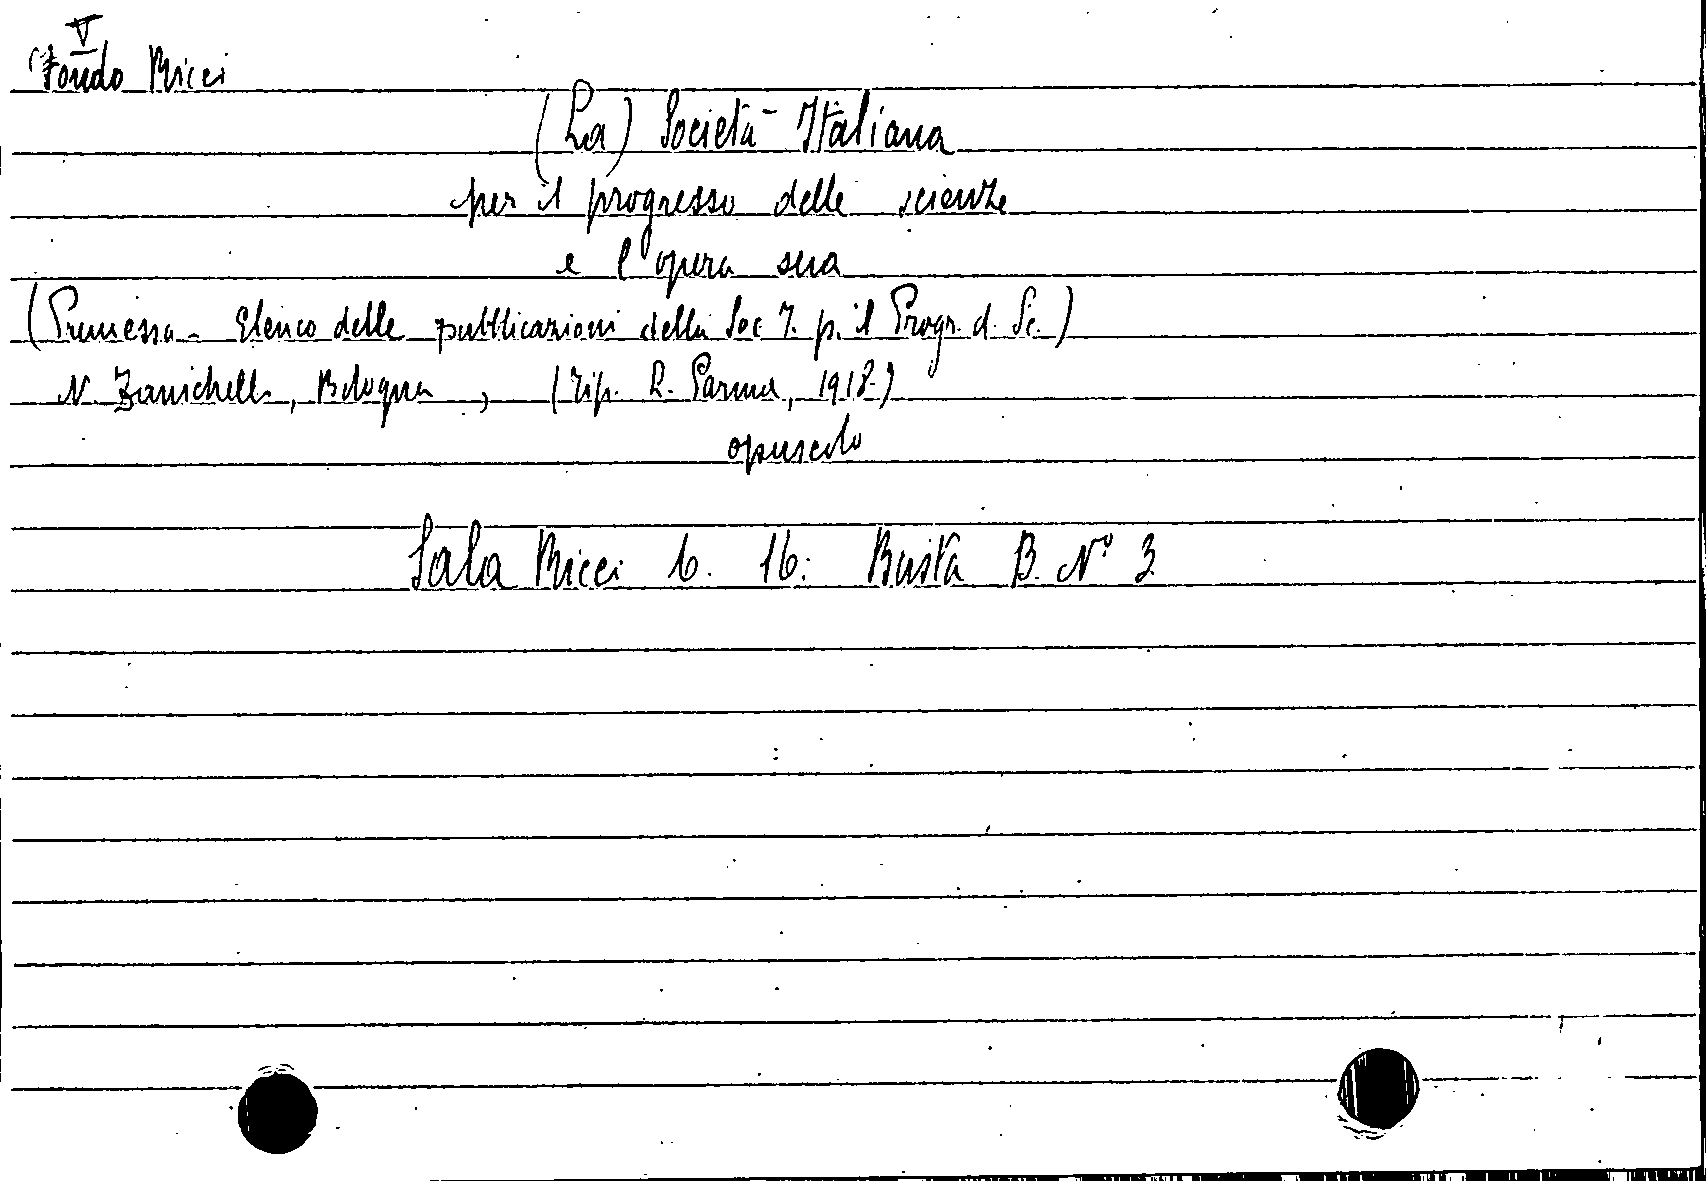 V
Fondo Ricci
(La) Società Italiana
per il progresso delle scienze
e l'opera sua
(Premessa - Elenco delle pubblicazioni della Soc. I. p. il Progr. d. Sc.)
N. Zanichelli, Bologna, (Tip. L. Parma, 1918.)
opuscolo
Sala Ricci 6. 16: Busta B. N° 3